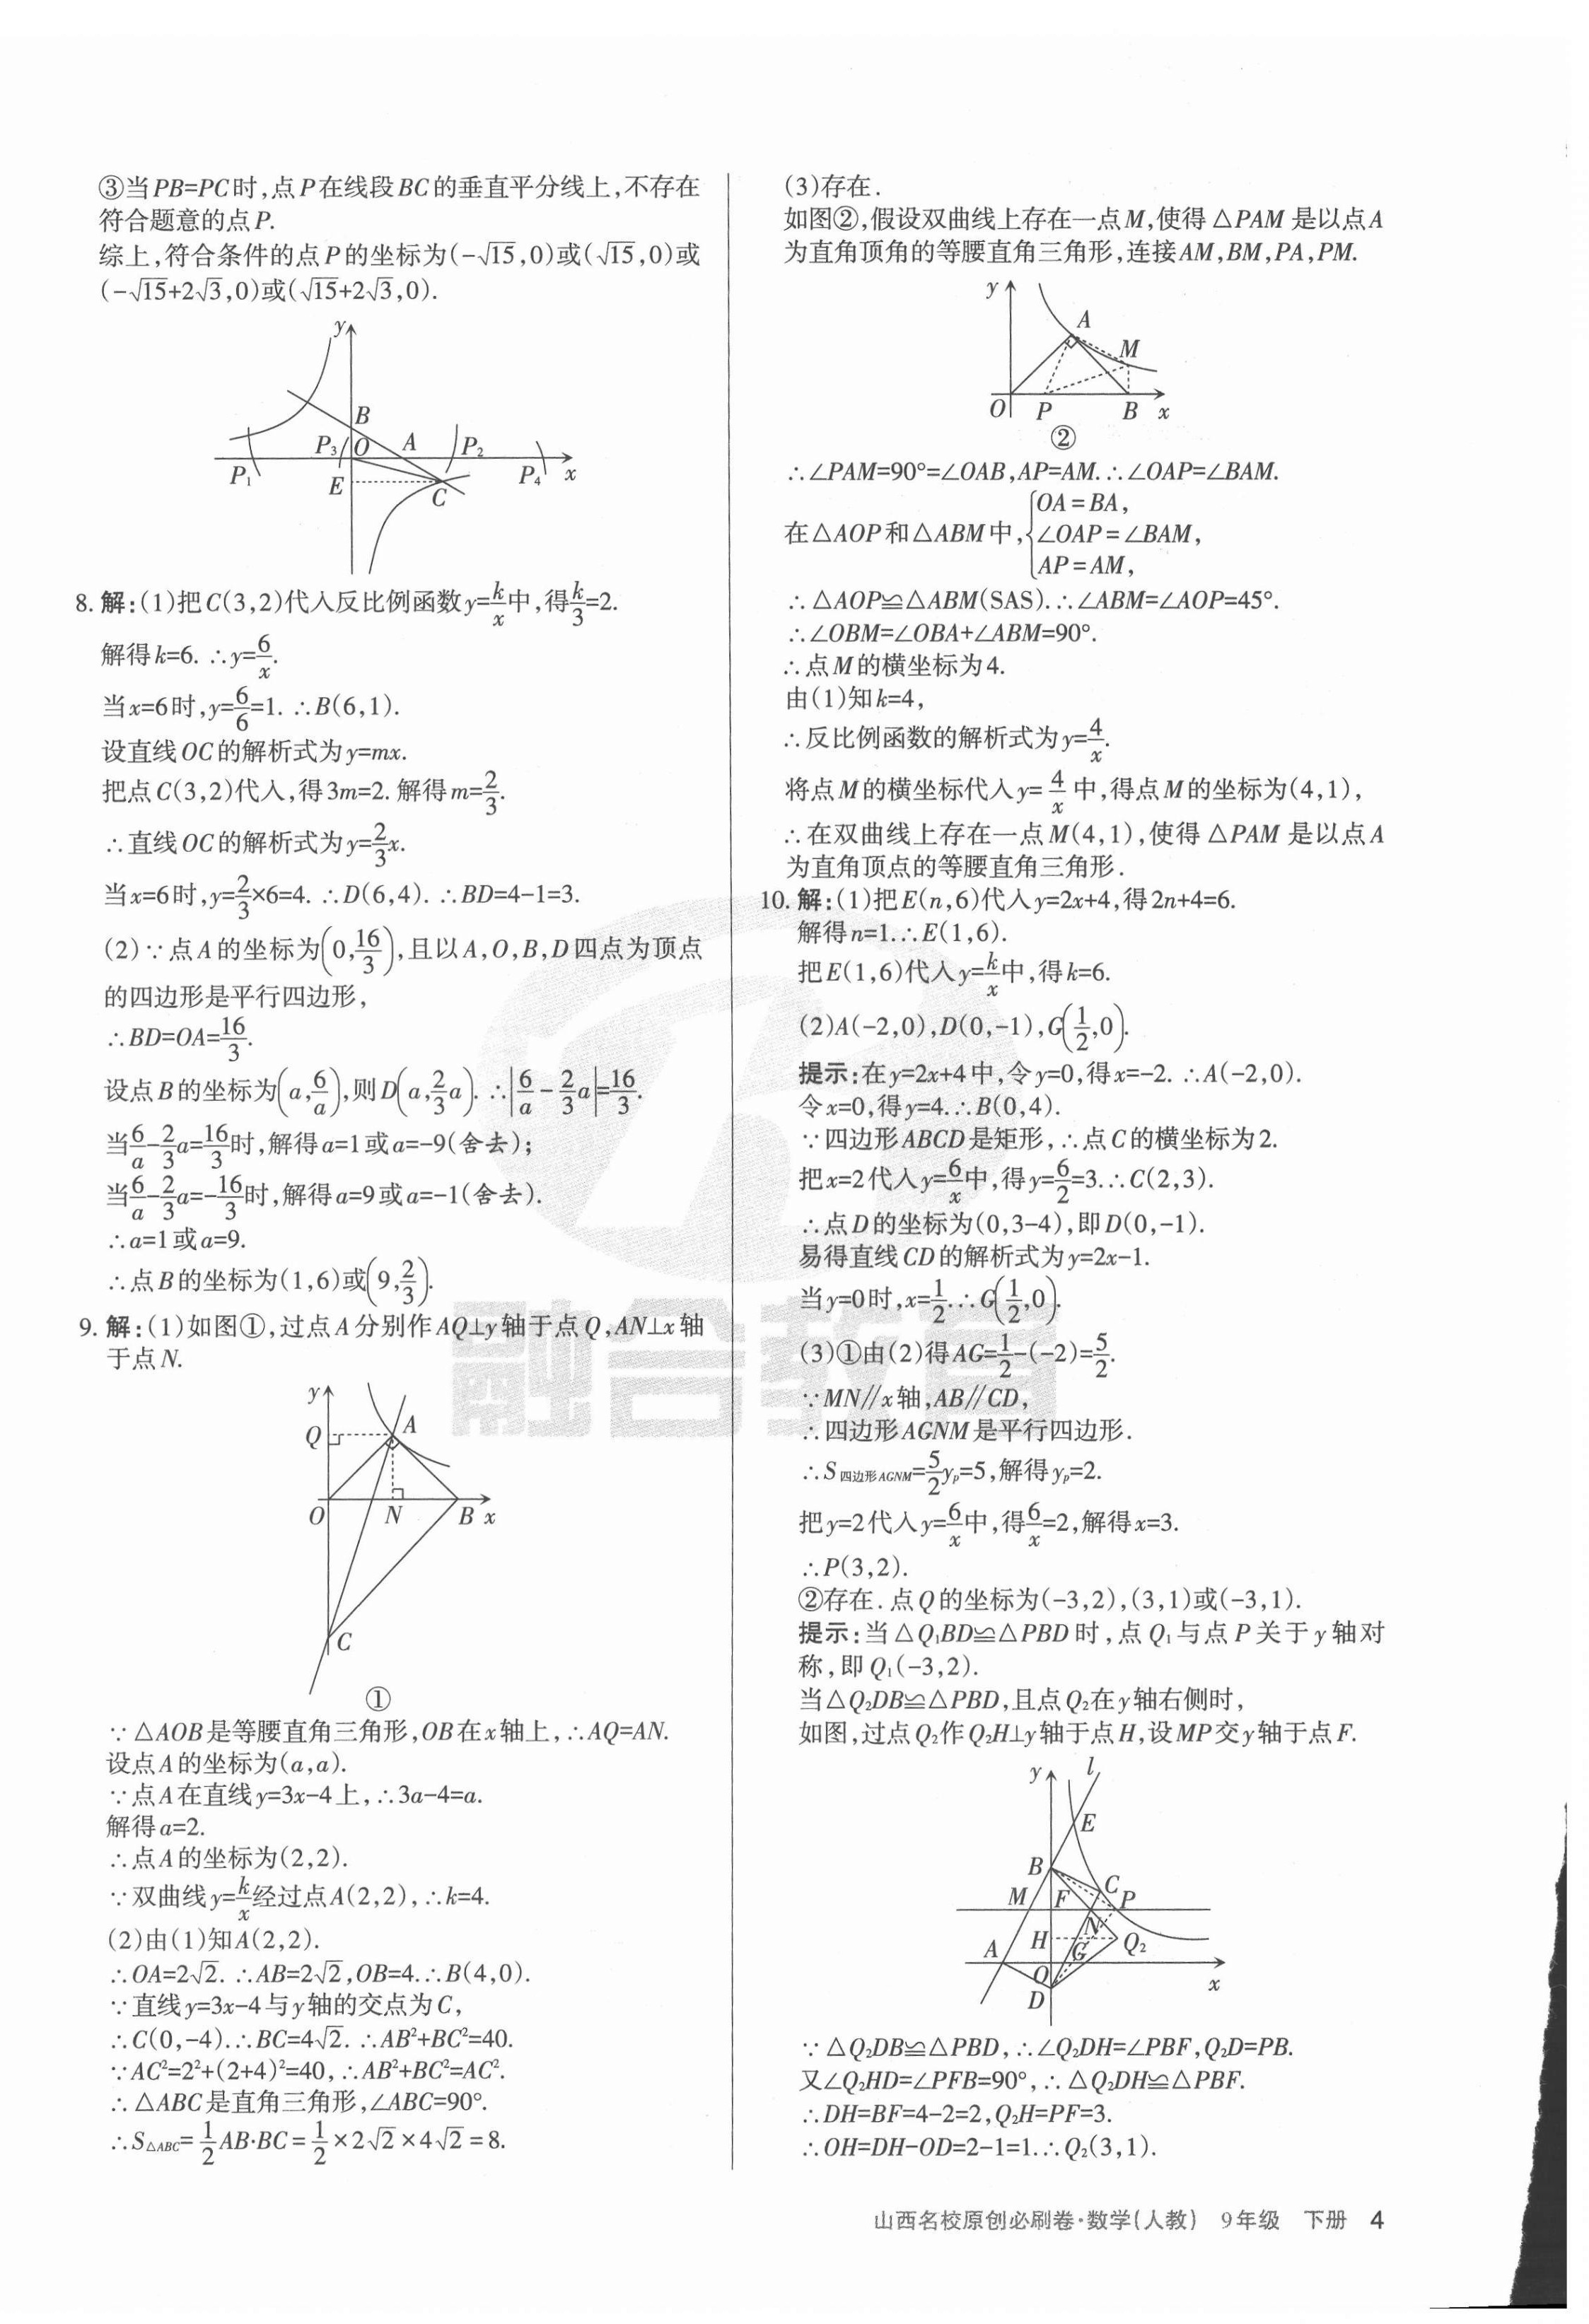 ③当PB=PC时,点P在线段BC的垂直平分线上,不存在
符合题意的点P.
综上,符合条件的点P的坐标为(-√15,0)或(√15,0)或
(-√15+2√3,0)或(√15+2√3,0).
y
B
P₃ O A P₂
P₁ E C P₄ x
8.解:(1)把C(3,2)代入反比例函数y=k/x中,得k/3=2.
解得k=6. ∴y=6/x.
当x=6时,y=6/6=1. ∴B(6,1).
设直线OC的解析式为y=mx.
把点C(3,2)代入,得3m=2. 解得m=2/3.
∴直线OC的解析式为y=2/3x.
当x=6时,y=2/3×6=4. ∴D(6,4). ∴BD=4-1=3.
(2)∵点A的坐标为(0,16/3),且以A,O,B,D四点为顶点
的四边形是平行四边形,
∴BD=OA=16/3.
设点B的坐标为(a,6/a),则D(a,2/3a). ∴|6/a-2/3a|=16/3.
当6/a-2/3a=16/3时,解得a=1或a=-9(舍去);
当6/a-2/3a=-16/3时,解得a=9或a=-1(舍去).
∴a=1或a=9.
∴点B的坐标为(1,6)或(9,2/3).
9.解:(1)如图①,过点A分别作AQ⊥y轴于点Q,AN⊥x轴
于点N.
y
Q A
O N B x
C
①
∵△AOB是等腰直角三角形,OB在x轴上,∴AQ=AN.
设点A的坐标为(a,a).
∵点A在直线y=3x-4上,∴3a-4=a.
解得a=2.
∴点A的坐标为(2,2).
∵双曲线y=k/x经过点A(2,2),∴k=4.
(2)由(1)知A(2,2).
∴OA=2√2. ∴AB=2√2,OB=4.∴B(4,0).
∵直线y=3x-4与y轴的交点为C,
∴C(0,-4).∴BC=4√2. ∴AB²+BC²=40.
∵AC²=2²+(2+4)²=40,∴AB²+BC²=AC².
∴△ABC是直角三角形,∠ABC=90°.
∴S△ABC=1/2AB·BC=1/2×2√2×4√2=8.
(3)存在.
如图②,假设双曲线上存在一点M,使得△PAM是以点A
为直角顶角的等腰直角三角形,连接AM,BM,PA,PM.
y
A
M
O P B x
②
∴∠PAM=90°=∠OAB,AP=AM.∴∠OAP=∠BAM.
在△AOP和△ABM中,{OA=BA,
∠OAP=∠BAM,
AP=AM,
∴△AOP≌△ABM(SAS).∴∠ABM=∠AOP=45°.
∴∠OBM=∠OBA+∠ABM=90°.
∴点M的横坐标为4.
由(1)知k=4,
∴反比例函数的解析式为y=4/x.
将点M的横坐标代入y=4/x中,得点M的坐标为(4,1),
∴在双曲线上存在一点M(4,1),使得△PAM是以点A
为直角顶点的等腰直角三角形.
10.解:(1)把E(n,6)代入y=2x+4,得2n+4=6.
解得n=1.∴E(1,6).
把E(1,6)代入y=k/x中,得k=6.
(2)A(-2,0),D(0,-1),G(1/2,0).
提示:在y=2x+4中,令y=0,得x=-2. ∴A(-2,0).
令x=0,得y=4.∴B(0,4).
∵四边形ABCD是矩形,∴点C的横坐标为2.
把x=2代入y=6/x中,得y=6/2=3.∴C(2,3).
∴点D的坐标为(0,3-4),即D(0,-1).
易得直线CD的解析式为y=2x-1.
当y=0时,x=1/2.∴G(1/2,0).
(3)①由(2)得AG=1/2-(-2)=5/2.
∵MN∥x轴,AB∥CD,
∴四边形AGNM是平行四边形.
∴S四边形AGNM=5/2yₚ=5,解得yₚ=2.
把y=2代入y=6/x中,得6/x=2,解得x=3.
∴P(3,2).
②存在. 点Q的坐标为(-3,2),(3,1)或(-3,1).
提示:当△Q₁BD≌△PBD时,点Q₁与点P关于y轴对
称,即Q₁(-3,2).
当△Q₂DB≌△PBD,且点Q₂在y轴右侧时,
如图,过点Q₂作Q₂H⊥y轴于点H,设MP交y轴于点F.
y l
E
B
M F C P
N
A H G Q₂
O x
D
∵△Q₂DB≌△PBD,∴∠Q₂DH=∠PBF,Q₂D=PB.
又∠Q₂HD=∠PFB=90°,∴△Q₂DH≌△PBF.
∴DH=BF=4-2=2,Q₂H=PF=3.
∴OH=DH-OD=2-1=1.∴Q₂(3,1).
融合教育
山西名校原创必刷卷·数学(人教) 9年级 下册 4